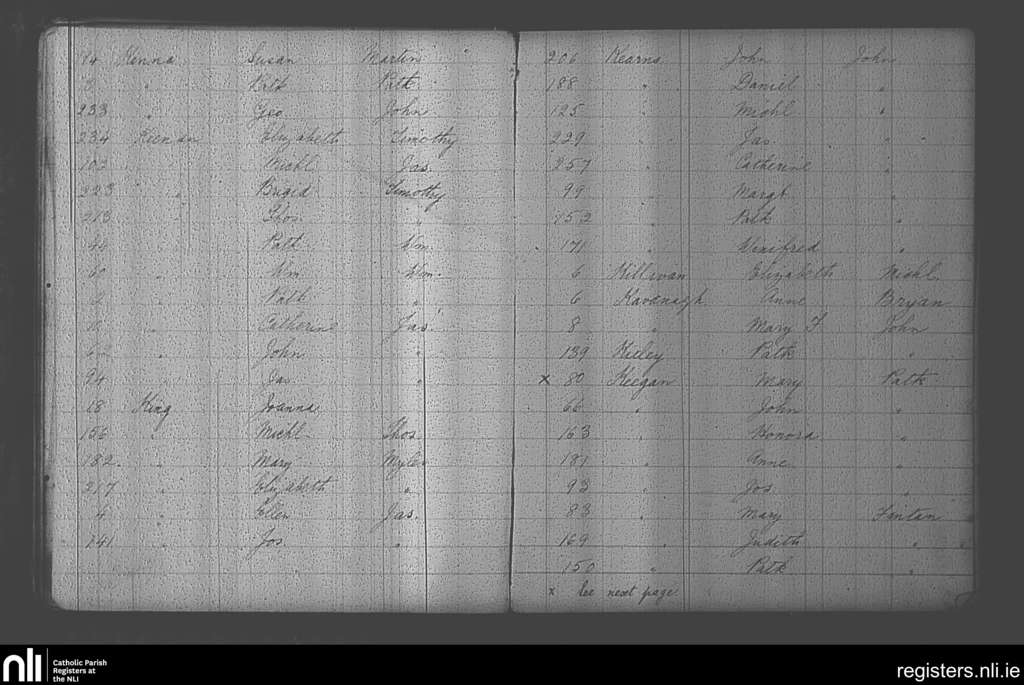 84 Kenna Susan Martin
8 " Patk Patk
233 " Geo John
234 Keenan Elizabeth Timothy
103 " Michl Jas.
223 " Bridgid Timothy
213 " Thos "
44 " Patk Wm.
60 " Wm Wm.
2 " Patk "
11 " Catherine Jas.
62 " John "
94 " Jas "
18 King Joanna
156 " Michl Thos.
182 " Mary Myles
217 " Elizabeth "
4 " Ellen Jas.
141 " Jos "
206 Kearns John John
188 " Daniel "
125 " Michl "
229 " Jas. "
257 " Catherine "
99 " Margt "
152 " Patk "
171 " Winifred "
6 Killivan Elizabeth Michl.
6 Kavenagh Anne Bryan
8 " Mary F. John
139 Kieley Patk "
x 80 Keegan Mary Patk
66 " John "
163 " Honora "
181 " Anne "
93 " Jos "
83 " Mary Fintan
169 " Judith "
150 " Patk "
x See next page.
nli Catholic Parish
Registers at
the NLI
registers.nli.ie